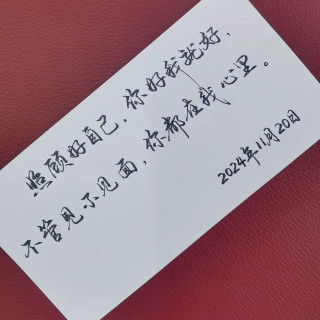 照顾好自己，你好我就好，
不管见不见面，你都在我心里。
2024年11月20日